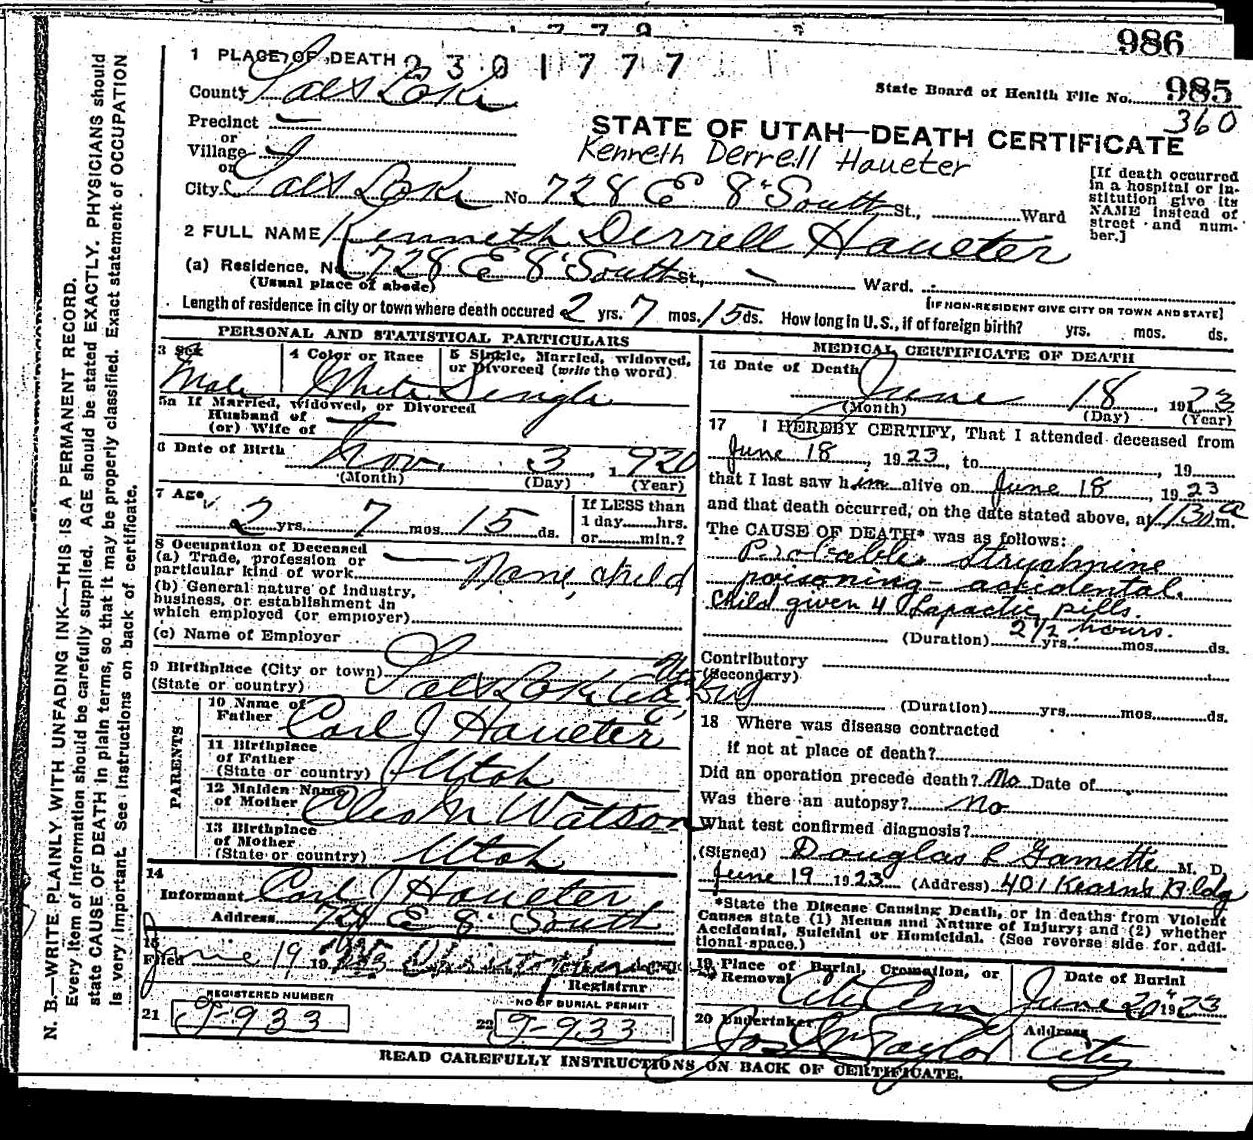 986
1 PLACE OF DEATH 2301777
County Salt Lake
State Board of Health File No. 985
360
Precinct —
or
Village —
or
STATE OF UTAH—DEATH CERTIFICATE
Kenneth Derrell Haueter
[If death occurred in a hospital or institution give its NAME instead of street and number.]
City Salt Lake No. 728 E 8" South St., Ward
2 FULL NAME Kenneth Derrell Haueter
(a) Residence. No. 728 E 8" South St., — Ward.
(Usual place of abode)
[IF NON-RESIDENT GIVE CITY OR TOWN AND STATE]
Length of residence in city or town where death occured 2 yrs. 7 mos. 15 ds. How long in U.S., if of foreign birth? yrs. mos. ds.
PERSONAL AND STATISTICAL PARTICULARS
3 Sex
Male
4 Color or Race
White
5 Single, Married, widowed, or Divorced (write the word)
Single
5a If Married, widowed, or Divorced
Husband of
(or) Wife of —
6 Date of Birth Nov. 3, 1920
(Month) (Day) (Year)
7 Age
2 yrs. 7 mos. 15 ds.
If LESS than
1 day......hrs.
or......min.?
8 Occupation of Deceased
(a) Trade, profession or
particular kind of work — None, child
(b) General nature of industry,
business, or establishment in
which employed (or employer)
(c) Name of Employer
9 Birthplace (City or town)
(State or country) Salt Lake City
PARENTS
10 Name of
Father Carl J Haueter
11 Birthplace
of Father
(State or country) Utah
12 Maiden Name
of Mother Cleo M Watson
13 Birthplace
of Mother
(State or country) Utah
14
Informant Carl J Haueter
Address 728 E 8" South
15
Filed June 19 1923
Registrar
REGISTERED NUMBER
21 J-933
NO OF BURIAL PERMIT
22 J-933
MEDICAL CERTIFICATE OF DEATH
16 Date of Death
June 18, 1923
(Month) (Day) (Year)
17 I HEREBY CERTIFY, That I attended deceased from
June 18, 1923, to, 19
that I last saw him alive on June 18, 1923
and that death occurred, on the date stated above, at 1130 a m.
The CAUSE OF DEATH* was as follows:
Probable strychnine
poisoning - accidental.
Child given 4 Lapactic pills.
2 1/2 hours.
(Duration) yrs. mos. ds.
Contributory
(Secondary)
(Duration) yrs. mos. ds.
18 Where was disease contracted
if not at place of death?
Did an operation precede death? No Date of
Was there an autopsy? No
What test confirmed diagnosis?
(Signed) Douglas M. D.
June 19 1923 (Address) 401 Kearns Bldg
*State the Disease Causing Death, or in deaths from Violent
Causes state (1) Means and Nature of Injury; and (2) whether
Accidental, Suicidal or Homicidal. (See reverse side for additional space.)
19 Place of Burial, Cremation, or
Removal City Cem
Date of Burial
June 20" 1923
20 Undertaker Taylor
Address
City
READ CAREFULLY INSTRUCTIONS ON BACK OF CERTIFICATE.
N. B.—WRITE PLAINLY WITH UNFADING INK—THIS IS A PERMANENT RECORD.
Every item of information should be carefully supplied. AGE should be stated EXACTLY. PHYSICIANS should
state CAUSE OF DEATH in plain terms, so that it may be properly classified. Exact statement of OCCUPATION
is very important. See instructions on back of certificate.